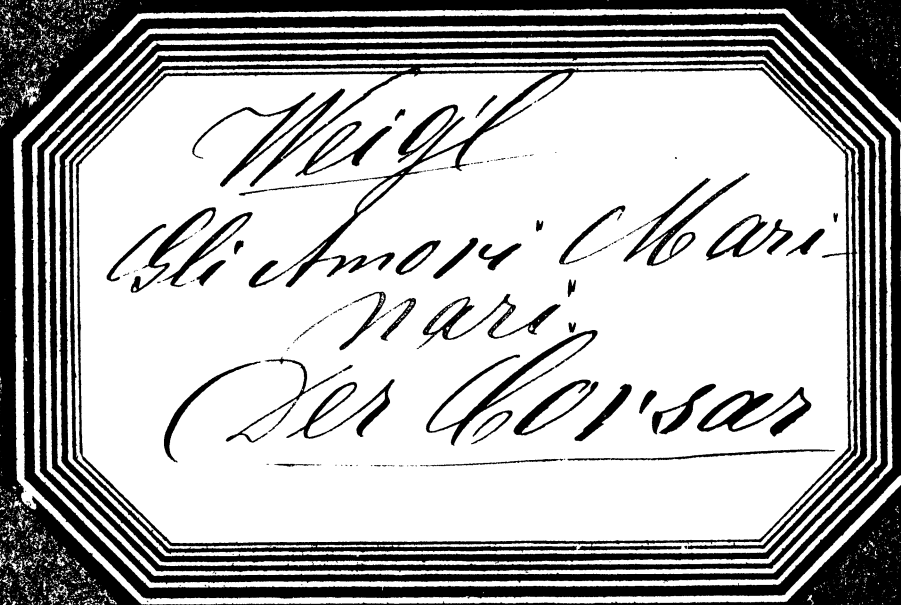 Weigl
Gli Amori Mari-
nari.
Der Corsar